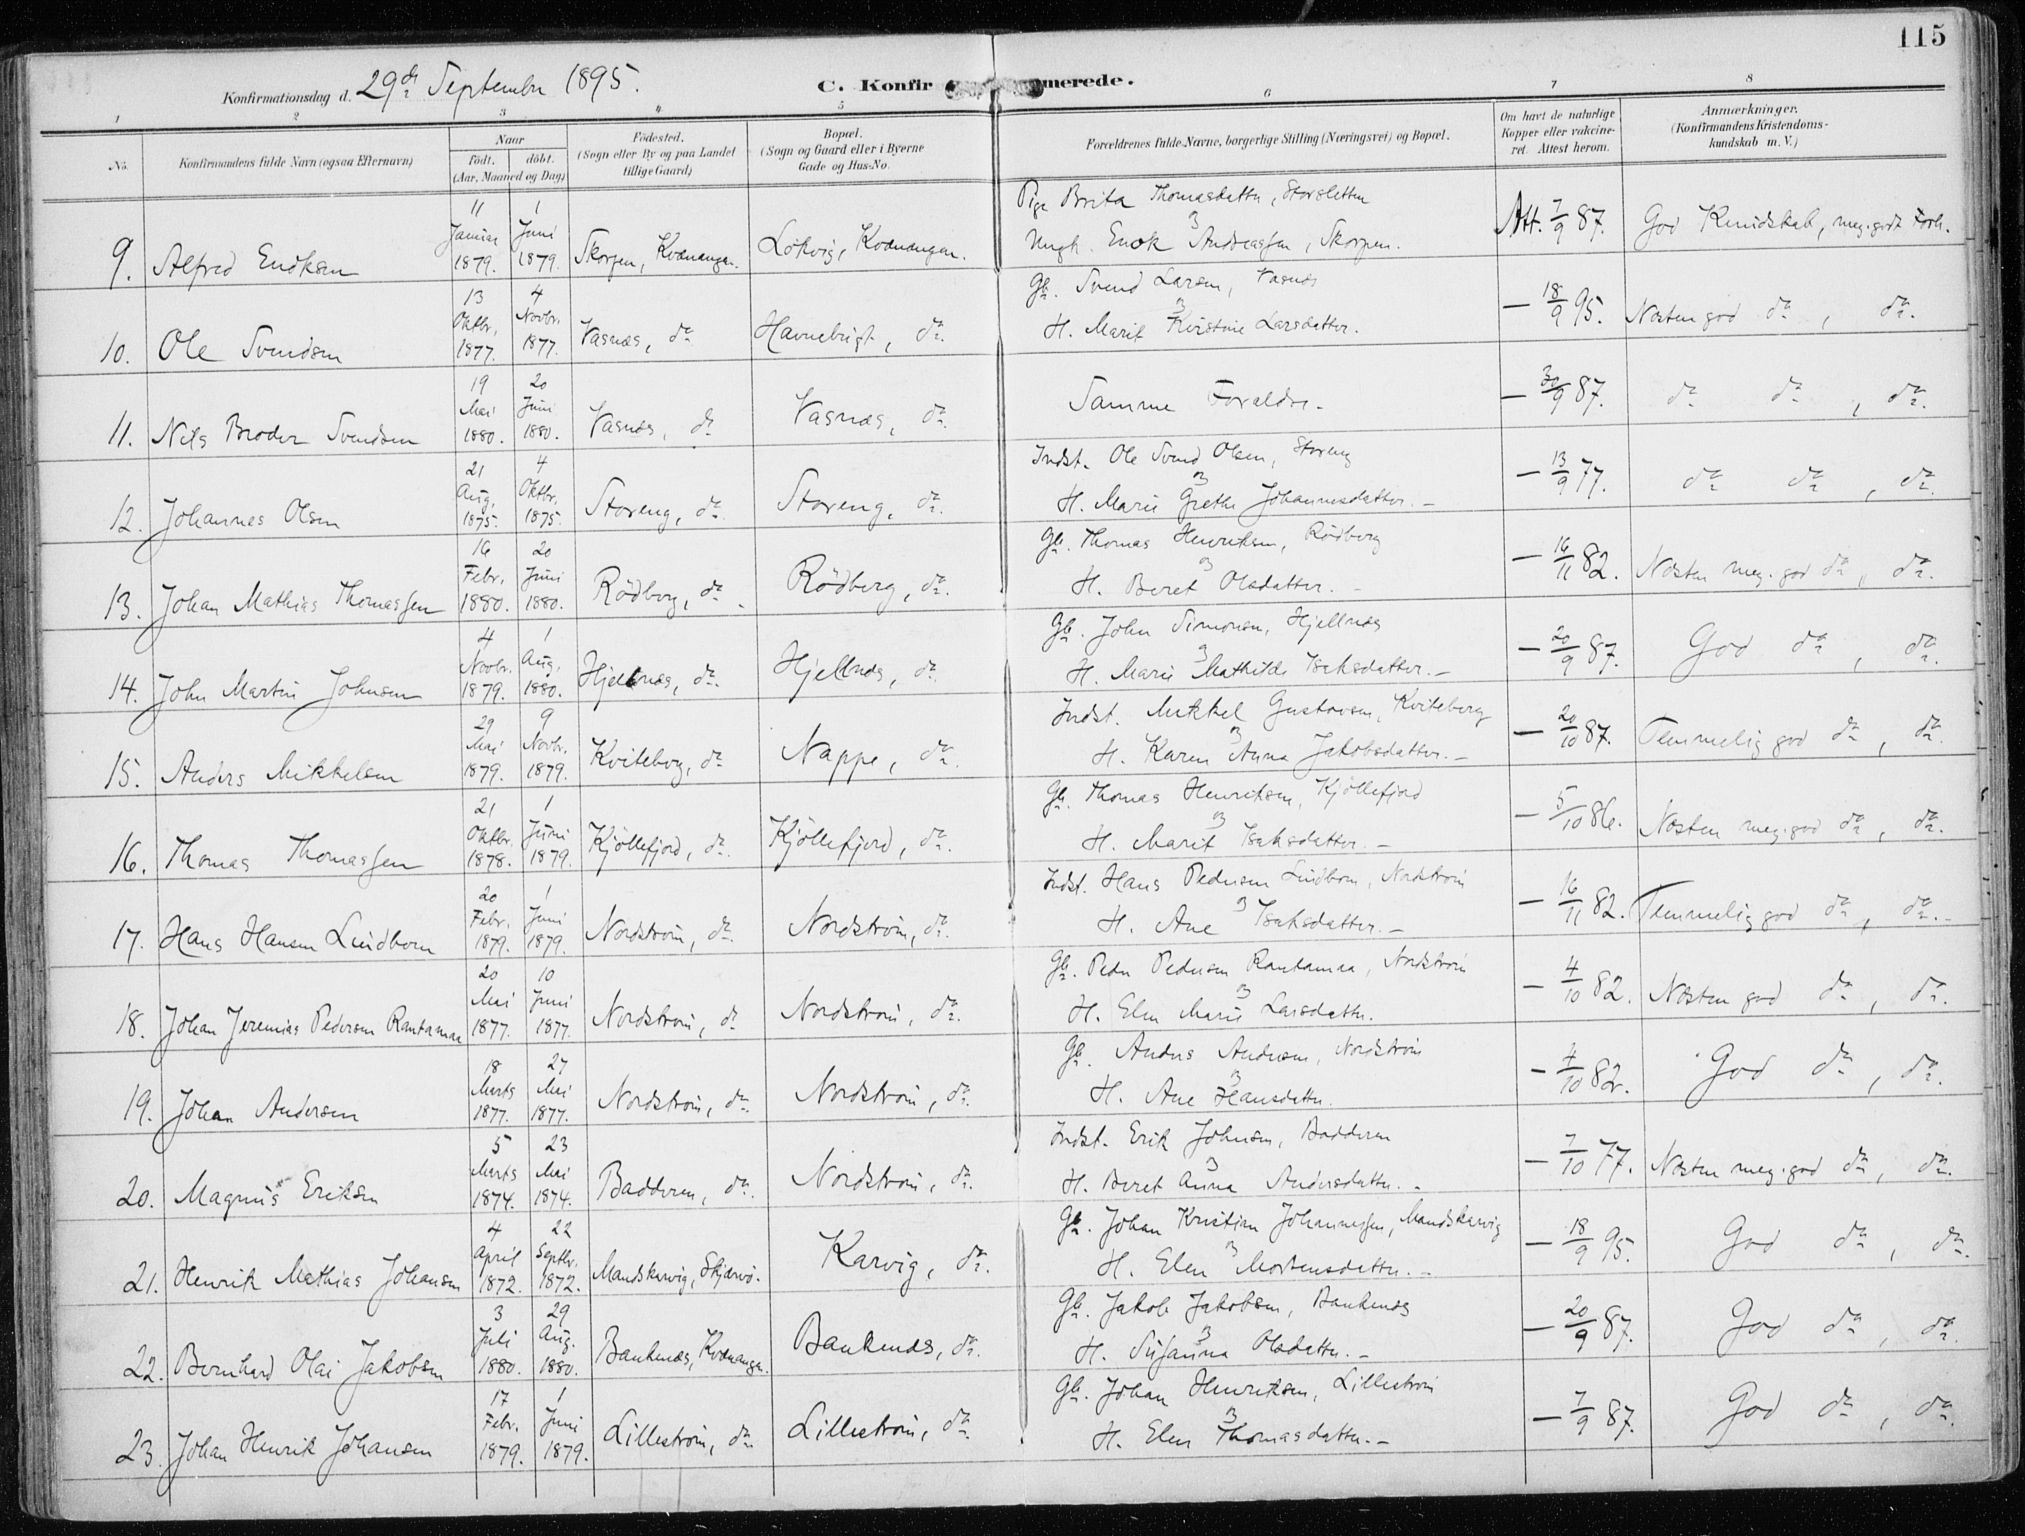 115
Konfirmationsdag d. 29de September 1895.
C. Konfirmerede.
1 2 3 4 5 6 7 8
No.
Konfirmandens fulde Navn (ogsaa Efternavn)
Naar
Födt. döbt.
(Aar, Maaned og Dag)
Födested.
(Sogn eller By og paa Landet
tillige Gaard)
Bopæl.
(Sogn og Gaard eller i Byerne
Gade og Hus-No.
Forældrenes fulde Navne, borgerlige Stilling (Næringsvei) og Bopæl.
Om havt de naturlige
Kopper eller vakcine-
ret. Attest herom.
Anmærkninger.
(Konfirmandens Kristendoms-
kundskab m. V.)
9. Alfred Enoksen 11 Januar 1879. 1 Juni 1879. Skorpen, Kvænangen. Løkvig, Kvænangen. Pige Brita Thomasdatter, Storsletten
Ungk. Enok Andreassen, Skorpen. Att. 7/9 87. God Kundskab, meg. godt Forh.
10. Ole Svendsen 13 Oktbr. 1877. 4 Novbr. 1877. Vasnæs, do Havnebugt, do. Gb. Svend Larsen, Vasnæs
H. Marit Kristine Larsdatter. — 18/9 95. Næsten god do, do.
11. Nils Broder Svendsen 19 Mai 1880. 20 Juni 1880. Vasnæs, do Vasnæs, do. Samme Forældre. — 30/9 87. do do, do.
12. Johannes Olsen 21 Aug. 1875. 4 Oktbr. 1875. Storeng, do. Storeng, do. Indst. Ole Svend Olsen, Storeng
H. Marie Grethe Johannesdatter. — — 13/9 77. do do, do.
13. Johan Mathias Thomassen 16 Febr. 1880. 20 Juni 1880. Rödberg, do. Rödberg, do. Gb. Thomas Henriksen, Rödberg
H. Beret Olsdatter. — — 16/11 82. Næsten meg. god do, do.
14. John Martin Johnsen 4 Novbr. 1879. 1 Aug. 1880. Hjellnæs, do. Hjellnæs, do. Gb. John Simonsen, Hjellnæs
H. Marie Mathilde Isaksdatter. — — 20/9 87. God do, do.
15. Anders Mikkelsen 29 Mai 1879. 9 Novbr. 1879. Kviteberg, do Nappe, do. Indst. Mikkel Gustavsen, Kviteberg
H. Karen Anna Jakobsdatter. — — 20/10 87. Temmelig god do, do.
16. Thomas Thomassen 21 Oktbr. 1878. 1 Juni 1879. Kjöllefjord, do. Kjöllefjord, do. Gb. Thomas Henriksen, Kjöllefjord
H. Marit Isaksdatter. — — 5/10 86. Næsten meg. god do, do.
17. Hans Hansen Lindbom 20 Febr. 1879. 1 Juni 1879. Nordström, do. Nordström, do. Indst. Hans Pedersen Lindbom, Nordström
H. Ane Isaksdatter. — — 16/11 82. Temmelig god do, do.
18. Johan Jeremias Pedersen Rantamaa 20 Mai 1877. 10 Juni 1877. Nordström, do Nordström, do. Gb. Peder Pedersen Rantamaa, Nordström
H. Elen Marie Larsdatter. — 4/10 82. Næsten god do, do.
19. Johan Andersen 18 Marts 1877. 27 Mai 1877. Nordström, do. Nordström, do. Gb. Anders Andersen, Nordström
H. Ane Hansdatter. — 4/10 82. God do, do.
20. Magnus Eriksen 5 Marts 1874. 23 Mai 1874. Badderen, do. Nordström, do. Indst. Erik Johnsen, Badderen
H. Beret Anna Andersdatter. — — 7/10 77. Næsten meg. god do, do.
21. Henrik Mathias Johansen 4 April 1872. 22 Septbr. 1872. Mandskarvig, Skjærvö. Karvig, do. Gb. Johan Kristian Johannessen, Mandskarvig
H. Elen Mortensdatter. — — 18/9 95. God do, do.
22. Bernhard Olai Jakobsen 3 Juli 1880. 29 Aug. 1880. Bankenæs, Kvænangen. Bankenæs, do. Gb. Jakob Jakobsen, Bankenæs
H. Susanna Olsdatter. — — 20/9 87. God do, do.
23. Johan Henrik Johansen 17 Febr. 1879. 1 Juni 1879. Lillestrøm, do. Lillestrøm, do. Gb. Johan Henriksen, Lillestrøm
H. Elen Thomasdatter. — — 7/9 87. God do, do.